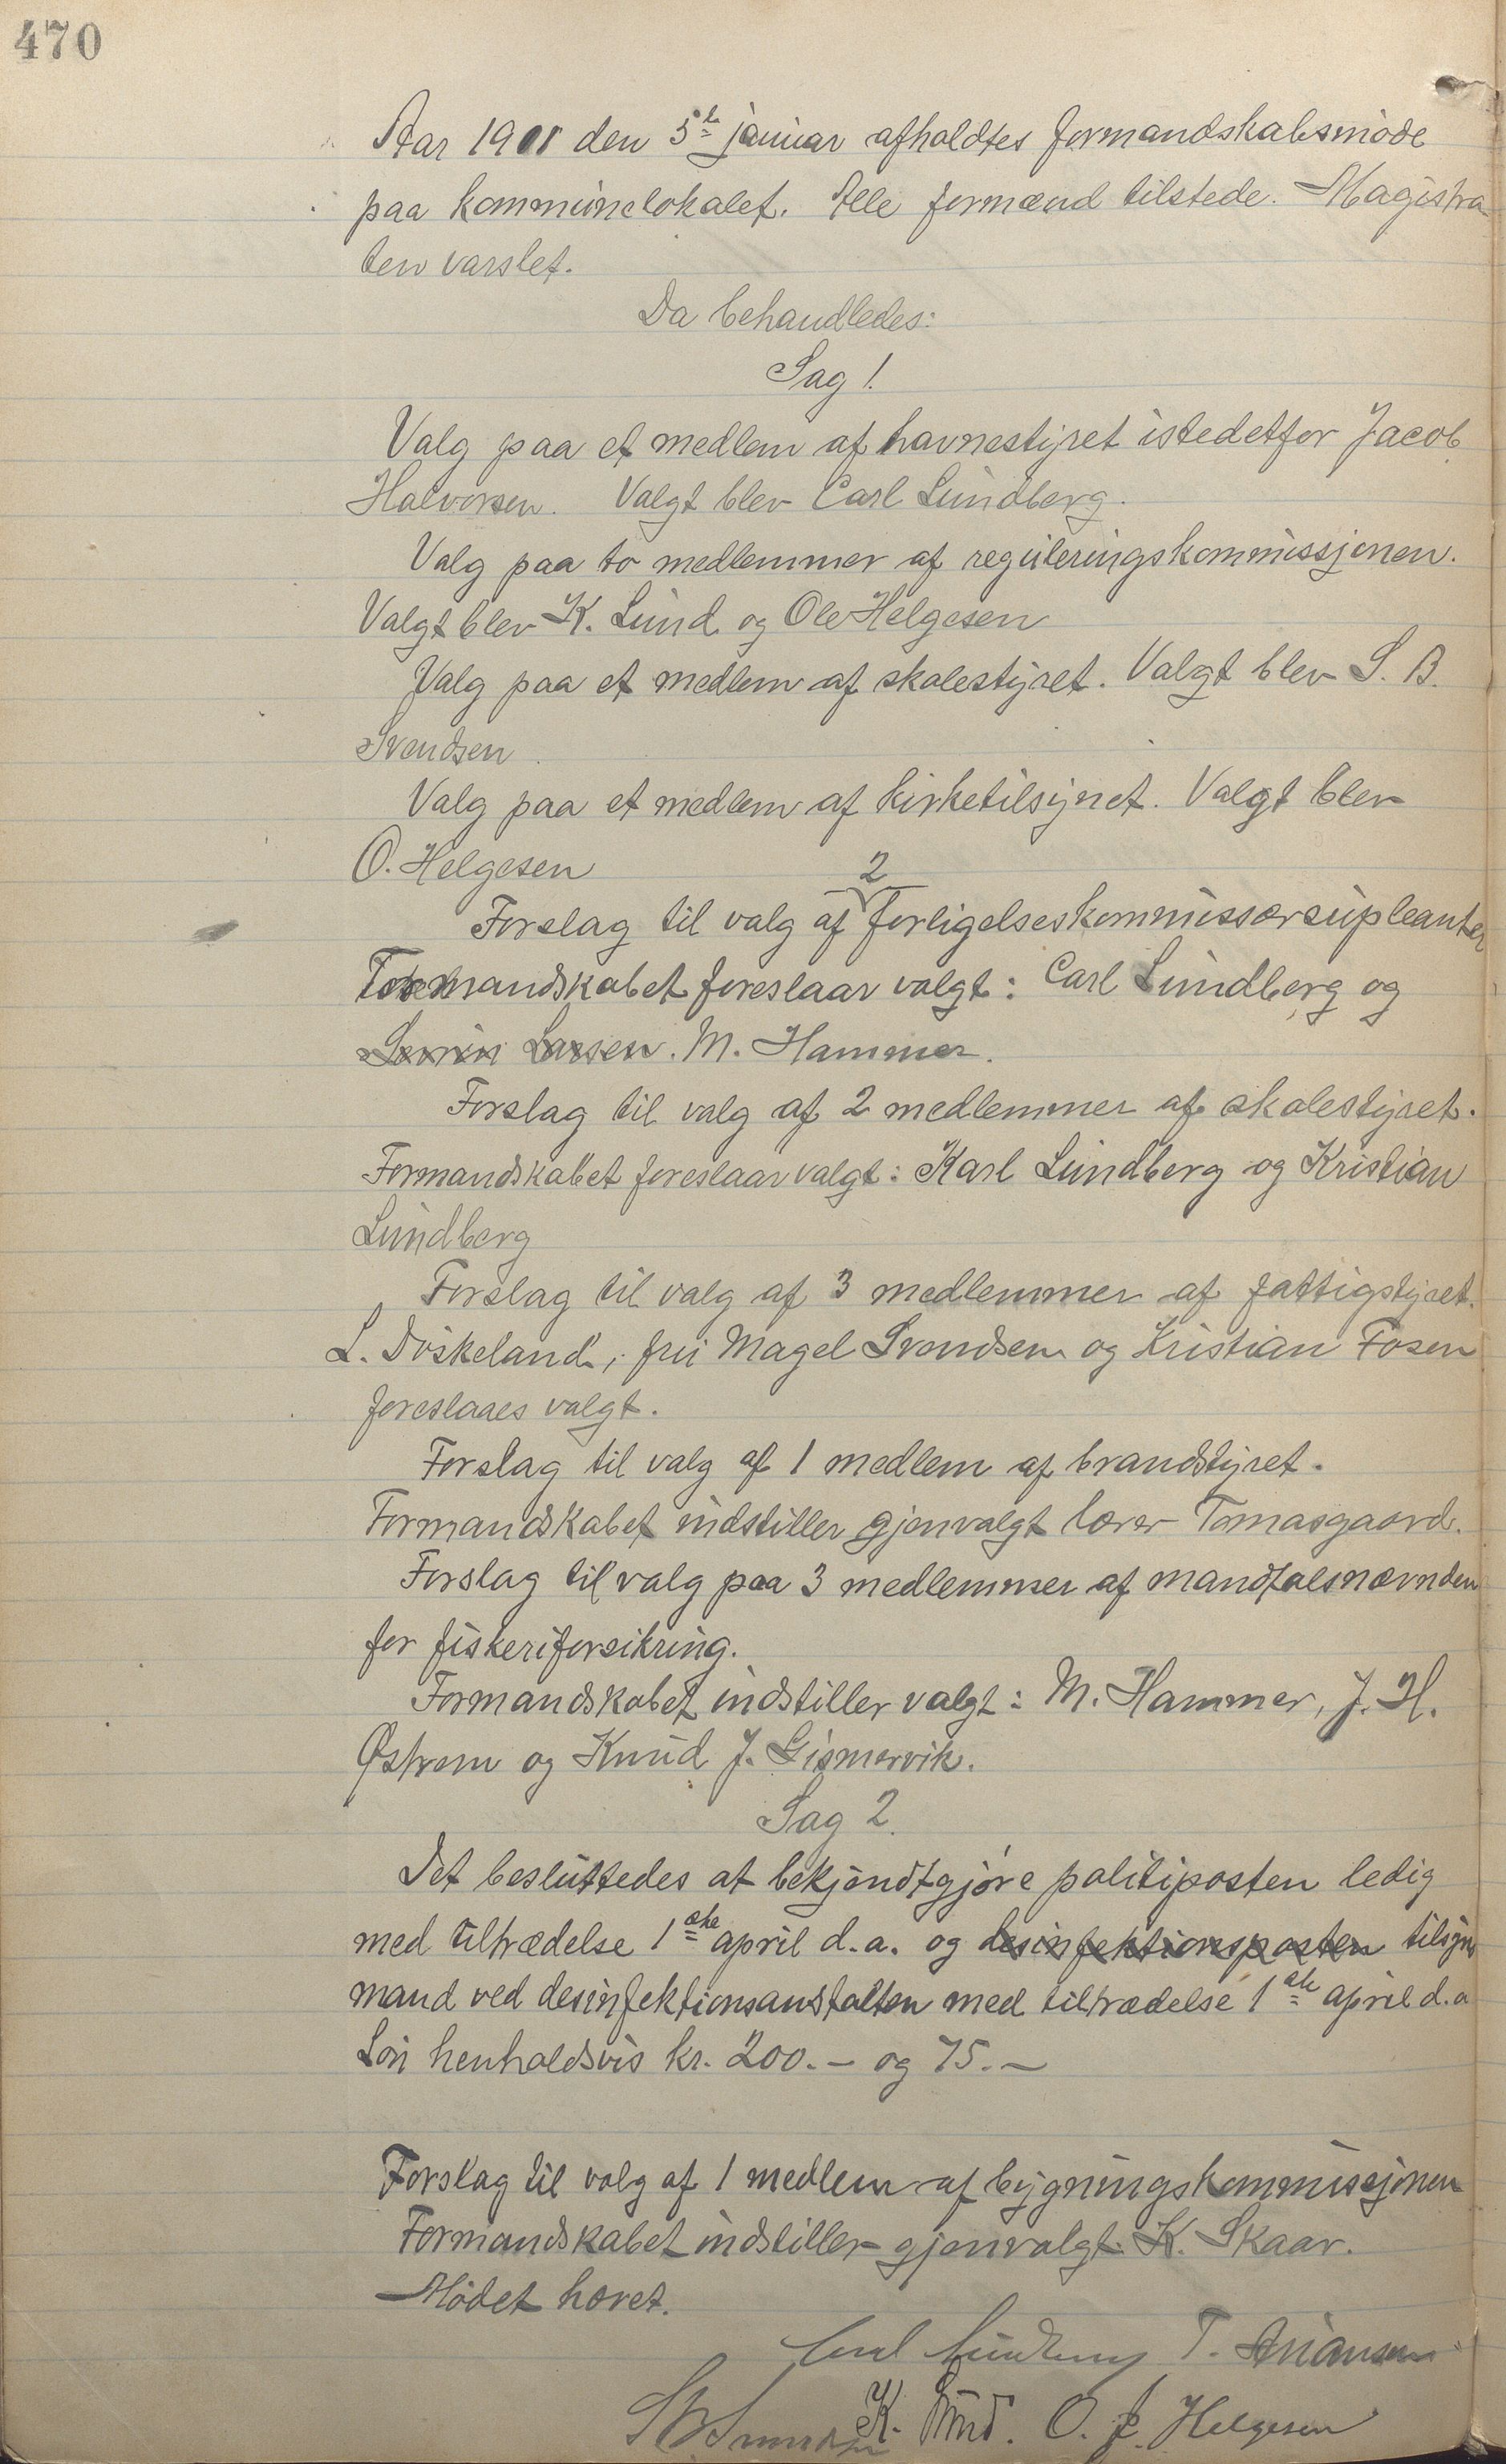 470
Aar 1911 den 5te januar afholdtes formandskabsmöde
paa kommunelokalet. Alle formænd tilstede. Magistra-
ten varslet.
Da behandledes:
Sag 1.
Valg paa et medlem af havnestyret istedetfor Jacob
Halvorsen. Valgt blev Carl Lundberg.
Valg paa to medlemmer af reguleringskommissjonen.
Valgt blev K. Lund og Ole Helgesen
Valg paa et medlem af skolestyret. Valgt blev S. B.
Svendsen.
Valg paa et medlem af kirketilsynet. Valgt blev
O. Helgesen
Forslag til valg af 2 forligelseskommissærsupleanter
Formandskabet foreslaar valgt: Carl Lundberg og
Larsen. M. Hammer.
Forslag til valg af 2 medlemmer af skolestyret.
Formandskabet foreslaar valgt: Karl Lundberg og Kristian
Lundberg
Forslag til valg af 3 medlemmer af fattigstyret.
L. Döskeland, fru Magel Svendsen og Kristian Fosen
foreslaaes valgt.
Forslag til valg af 1 medlem af brandstyret.
Formandskabet indstiller gjenvalgt lærer Tomasgaard.
Forslag til valg paa 3 medlemmer af mandtalsnævnden
for fiskeriforsikring.
Formandskabet indstiller valgt: M. Hammer, J. H.
Østrem og Knud J. Gismervik.
Sag 2.
Det besluttedes at bekjendtgjöre politiposten ledig
med tiltrædelse 1ste april d.a. og desinfektionsposten tilsyns
mand ved desinfektionsanstalten med tiltrædelse 1ste april d.a
Lön henholdsvis kr. 200.- og 75.-
Forslag til valg af 1 medlem af bygningskommissjonen
Formandskabet indstiller gjenvalgt K. Skaar.
Mödet hævet.
Carl Lundberg T.
S B Svendsen K. Lund. O. J. Helgesen